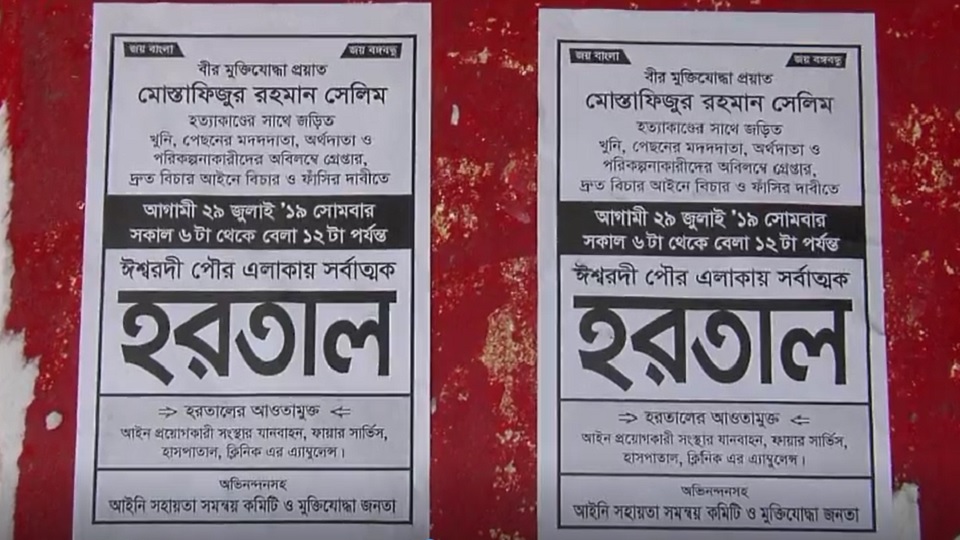 জয় বাংলা
জয় বঙ্গবন্ধু
বীর মুক্তিযোদ্ধা প্রয়াত
মোস্তাফিজুর রহমান সেলিম
হত্যাকাণ্ডের সাথে জড়িত
খুনি, পেছনের মদদদাতা, অর্থদাতা ও
পরিকল্পনাকারীদের অবিলম্বে গ্রেপ্তার,
দ্রুত বিচার আইনে বিচার ও ফাঁসির দাবীতে
আগামী ২৯ জুলাই '১৯ সোমবার
সকাল ৬টা থেকে বেলা ১২টা পর্যন্ত
ঈশ্বরদী পৌর এলাকায় সর্বাত্মক
হরতাল
হরতালের আওতামুক্ত
আইন প্রয়োগকারী সংস্থার যানবাহন, ফায়ার সার্ভিস,
হাসপাতাল, ক্লিনিক এর এ্যাম্বুলেন্স।
অভিনন্দনসহ
আইনি সহায়তা সমন্বয় কমিটি ও মুক্তিযোদ্ধা জনতা
জয় বাংলা
জয় বঙ্গবন্ধু
বীর মুক্তিযোদ্ধা প্রয়াত
মোস্তাফিজুর রহমান সেলিম
হত্যাকাণ্ডের সাথে জড়িত
খুনি, পেছনের মদদদাতা, অর্থদাতা ও
পরিকল্পনাকারীদের অবিলম্বে গ্রেপ্তার,
দ্রুত বিচার আইনে বিচার ও ফাঁসির দাবীতে
আগামী ২৯ জুলাই '১৯ সোমবার
সকাল ৬টা থেকে বেলা ১২টা পর্যন্ত
ঈশ্বরদী পৌর এলাকায় সর্বাত্মক
হরতাল
হরতালের আওতামুক্ত
আইন প্রয়োগকারী সংস্থার যানবাহন, ফায়ার সার্ভিস,
হাসপাতাল, ক্লিনিক এর এ্যাম্বুলেন্স।
অভিনন্দনসহ
আইনি সহায়তা সমন্বয় কমিটি ও মুক্তিযোদ্ধা জনতা